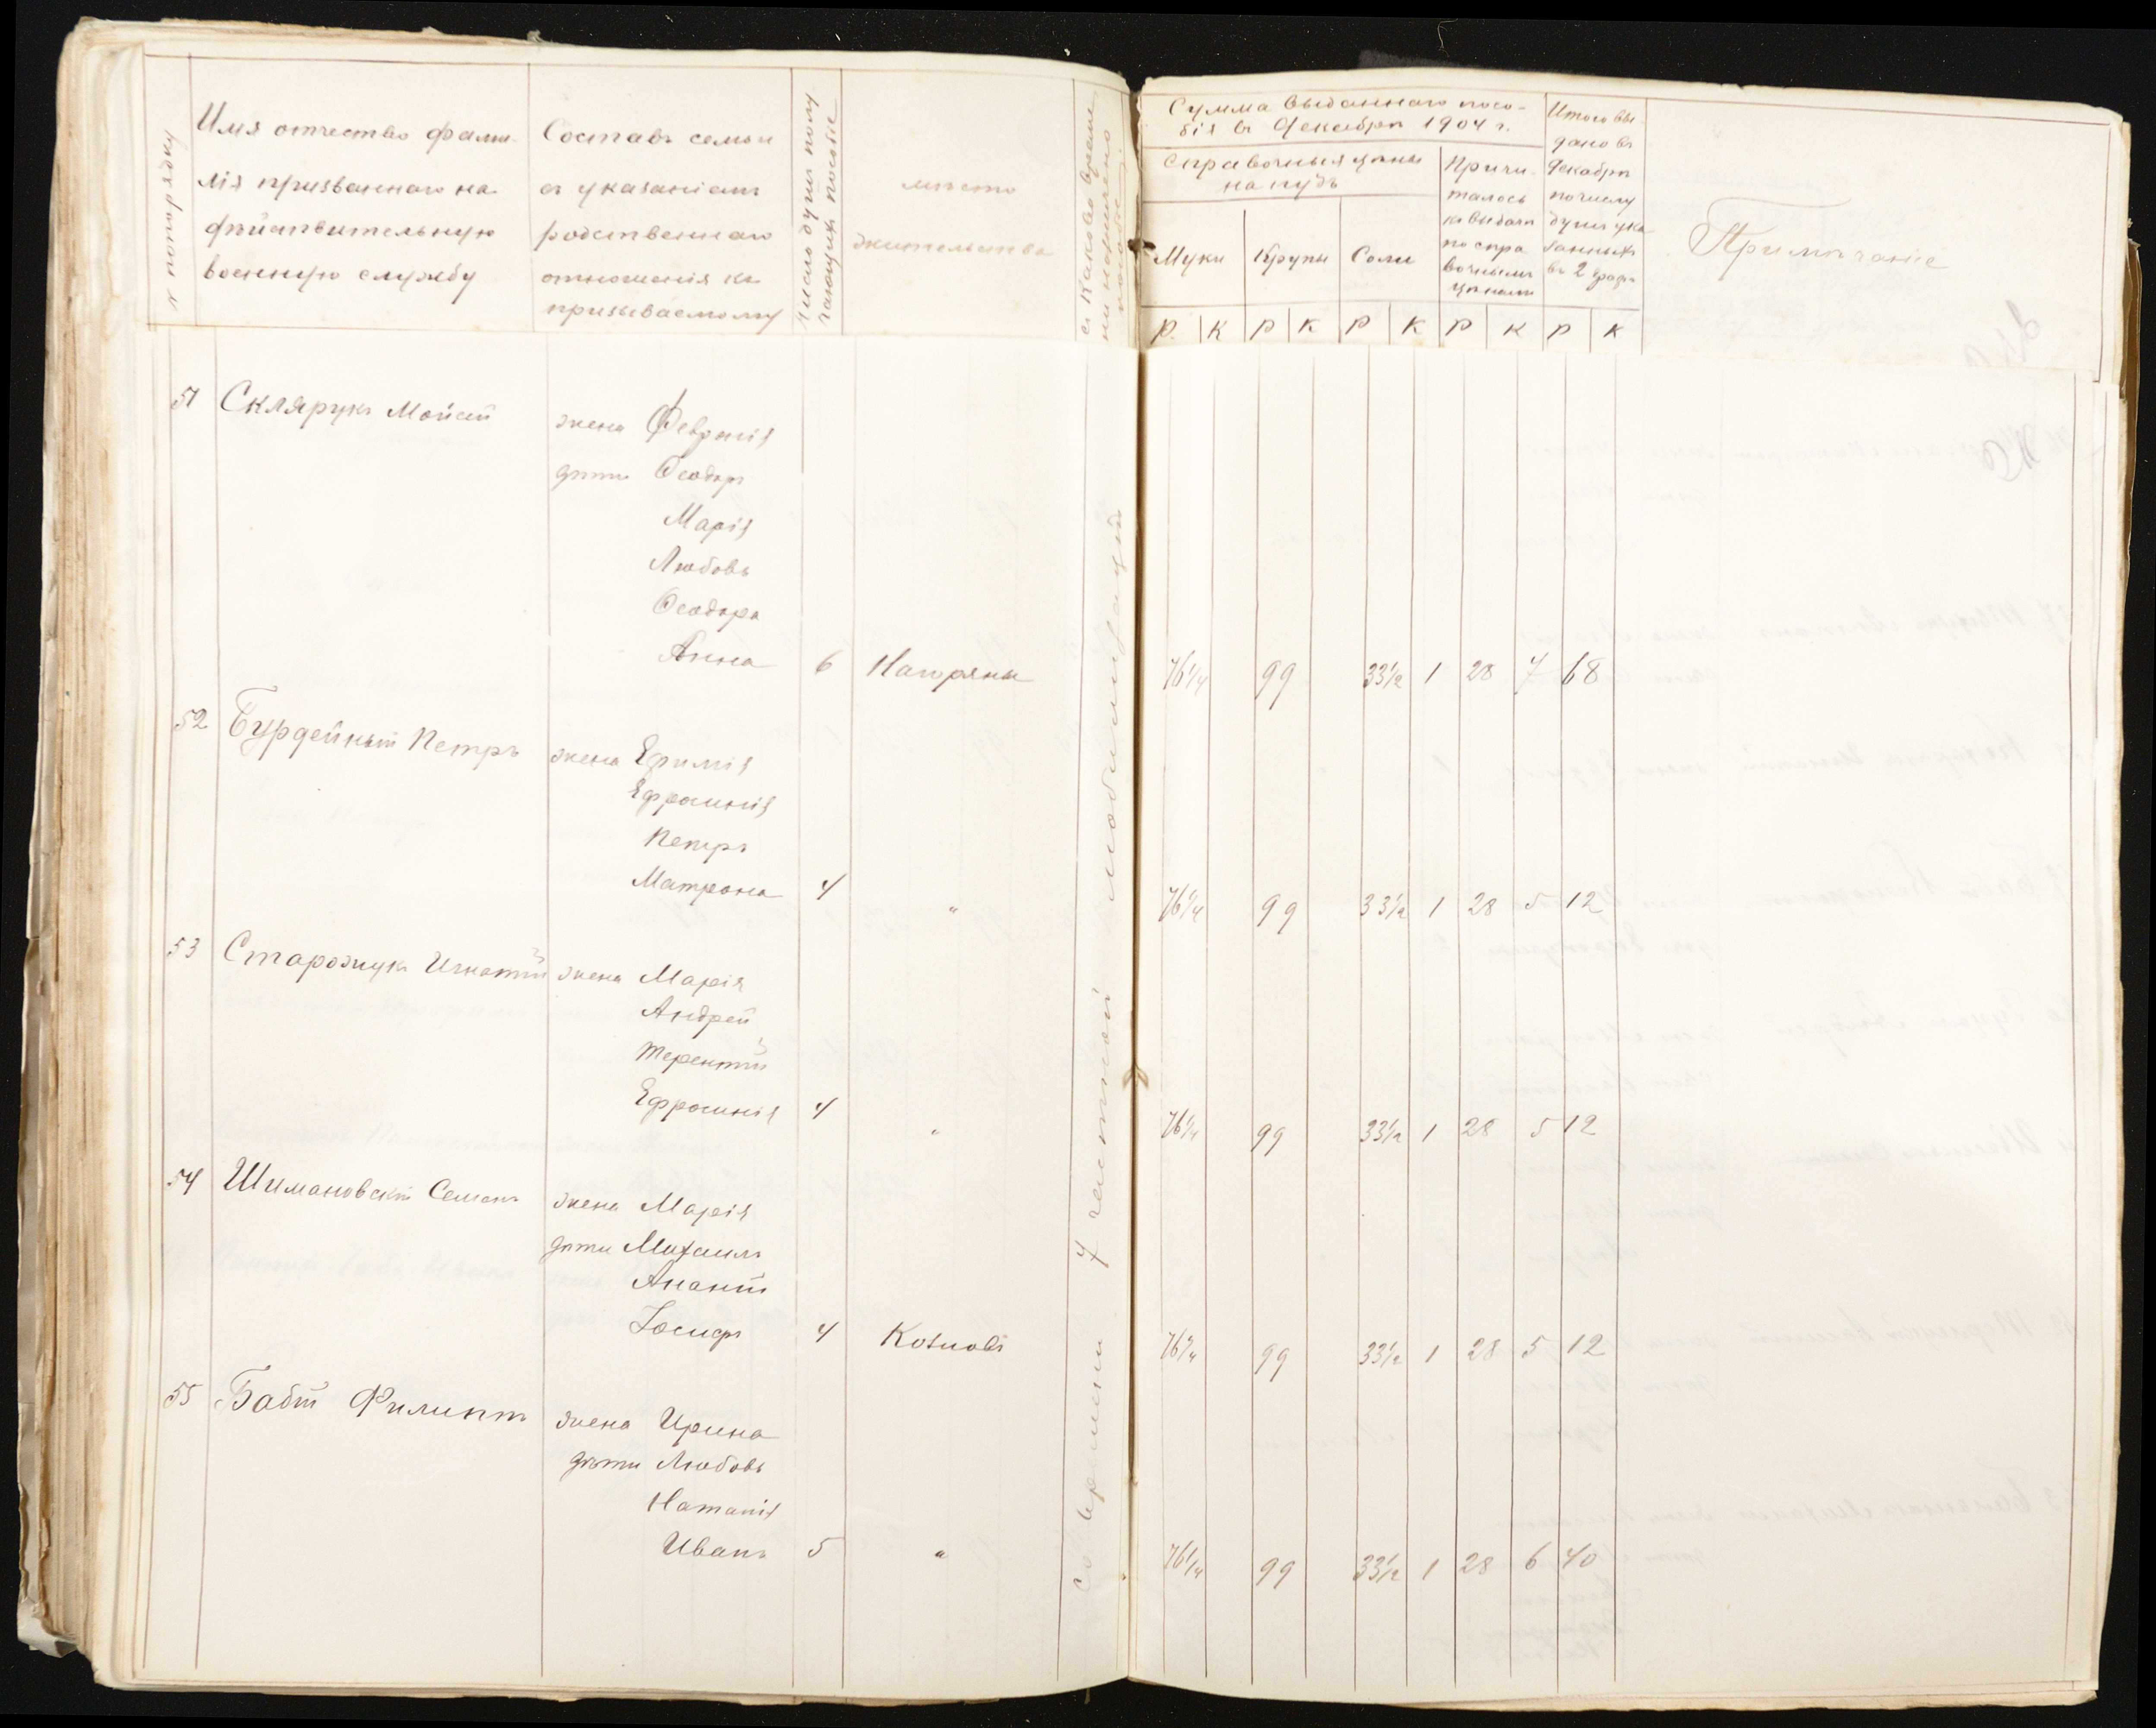 № по порядку
Имя отчество фами-
лія призваннаго на
дѣйствительную
военную службу
Составъ семьи
съ указаніемъ
родственнаго
отношенія къ
призываемому
число душъ полу
чающихъ пособіе
мѣсто
жительства
съ какого време
ни назначено
пособіе
Сумма выданнаго посо-
бія въ Декабрѣ 1904 г.
Справочныя цѣны
на пудъ
Муки
Крупы
Соли
Причи-
талось
къ выдачѣ
по спра
вочнымъ
цѣнамъ
Итого вы-
дано въ
Декабрѣ
по числу
душъ ука-
занныхъ
въ 2 граф.
Примѣчаніе
Р. К Р К Р К Р К Р К
51 Склярукъ Мойсей жена Февронія
дѣти Ѳеодоръ
Марія
Любовь
Ѳеодора
Анна 6 Нагоряны 76¼ 99 33½ 1 28 7 68
52 Бурдейный Петръ жена Ефимія
Ефросинія
Петръ
Матрона 4 " 76¼ 99 33½ 1 28 5 12
53 Старожукъ Игнатій жена Марія
Андрей
Терентій
Ефросинія 4 " 76¼ 99 33½ 1 28 5 12
54 Шимановскій Семенъ жена Марія
дѣти Михаилъ
Ананій
Іосифъ 4 Козловъ 76¼ 99 33½ 1 28 5 12
55 Бабій Филиппъ жена Ирина
дѣти Любовь
Наталія
Иванъ 5 " 76¼ 99 33½ 1 28 6 40
со времени 7 частной мобилизаціи